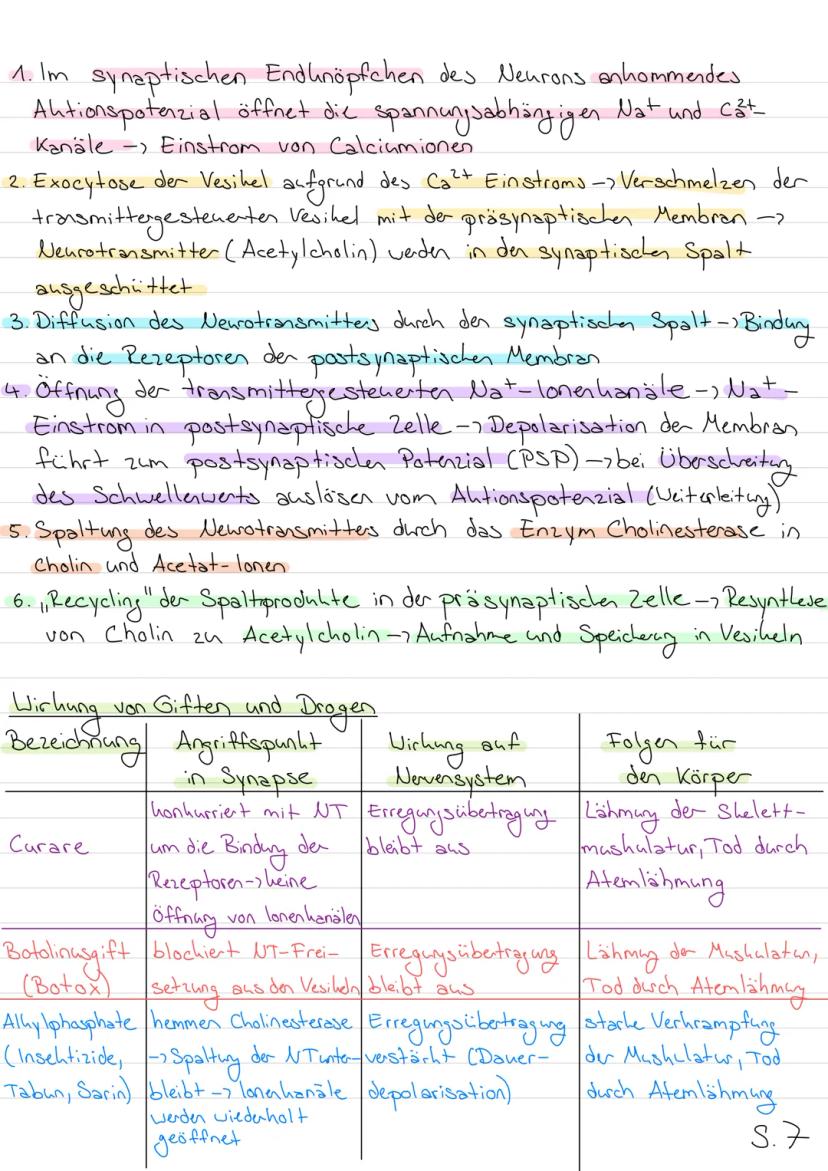 1. Im synaptischen Endknöpfchen des Neurons ankommendes
Aktionspotenzial öffnet die spannungsabhängigen Na⁺ und Ca²⁺-
Kanäle -> Einstrom von Calciumionen
2. Exocytose der Vesikel aufgrund des Ca²⁺ Einstroms -> Verschmelzen der
transmittergesteuerten Vesikel mit der präsynaptischen Membran ->
Neurotransmitter (Acetylcholin) werden in den synaptischen Spalt
ausgeschüttet
3. Diffusion des Neurotransmitters durch den synaptischen Spalt -> Bindung
an die Rezeptoren der postsynaptischen Membran
4. Öffnung der transmittergesteuerten Na⁺-Ionenkanäle -> Na⁺-
Einstrom in postsynaptische Zelle -> Depolarisation der Membran
führt zum postsynaptischen Potenzial (PSP) -> bei Überschreitung
des Schwellenwerts auslösen vom Aktionspotenzial (Weiterleitung)
5. Spaltung des Neurotransmitters durch das Enzym Cholinesterase in
Cholin und Acetat-Ionen
6. „Recycling" der Spaltprodukte in der präsynaptischen Zelle -> Resynthese
von Cholin zu Acetylcholin -> Aufnahme und Speicherung in Vesikeln
Wirkung von Giften und Drogen
Bezeichnung
Angriffspunkt
in Synapse
Wirkung auf
Nervensystem
Folgen für
den Körper
Curare
konkurriert mit NT
um die Bindung der
Rezeptoren -> keine
Öffnung von Ionenkanälen
Erregungsübertragung
bleibt aus
Lähmung der Skelett-
muskulatur, Tod durch
Atemlähmung
Botolinusgift
(Botox)
blockiert NT-Frei-
setzung aus den Vesikeln
Erregungsübertragung
bleibt aus
Lähmung der Muskulatur,
Tod durch Atemlähmung
Alkylphosphate
(Insektizide,
Tabun, Sarin)
hemmen Cholinesterase
-> Spaltung der NT unter-
bleibt -> Ionenkanäle
werden wiederholt
geöffnet
Erregungsübertragung
verstärkt (Dauer-
depolarisation)
starke Verkrampfung
der Muskulatur, Tod
durch Atemlähmung
S. 7